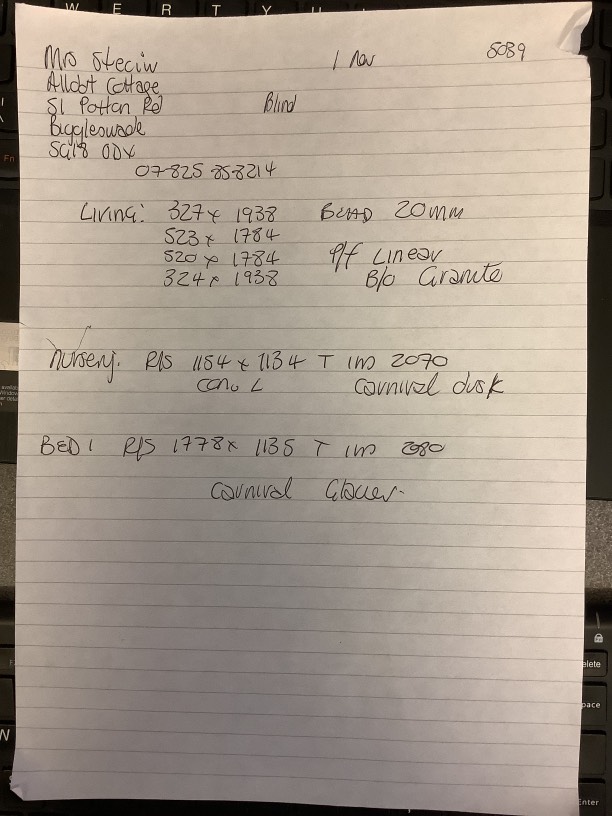 Mrs Steciw 1 Nov 5089
Allobt Cottage
51 Potton Rd Blind
Biggleswade
SG18 0DX
07825 858214
Living: 327 x 1938 BEAD 20mm
523 x 1784
520 x 1784 P/f Linear
324 x 1938 B/o Granite
Nursery. R/S 1154 x 1134 T 1m 2070
Cono L Carnival dusk
BED 1 R/S 1778 x 1135 T 1m 2080
Carnival Glacier.
W E R T Y U
Fn
elete
pace
Enter
N